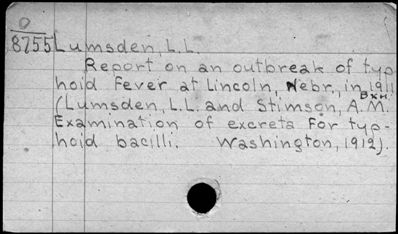 O
8755 Lumsden, L.L.
Report on an outbreak of typ
hoid fever at Lincoln, Nebr., in 1911
BKH
(Lumsden, L.L. and Stimson, A.M.
Examination of excreta for typ-
hoid bacilli. Washington, 1912).